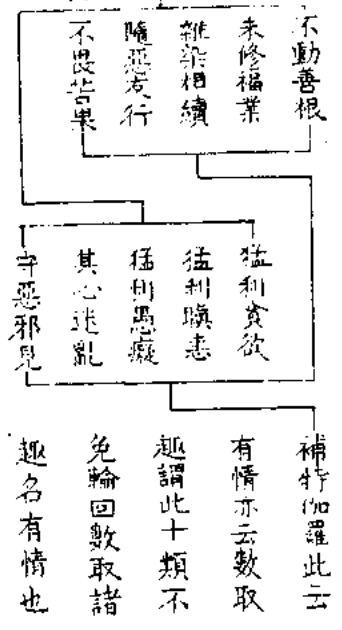 不動善根
未修福業
雜染相續
隨惡友行
不畏苦果
猛利貪欲
猛利瞋恚
猛利愚癡
其心迷亂
守惡邪見
補特伽羅此云
有情亦云數取
趣謂此十類不
免輪回數取諸
趣名有情也